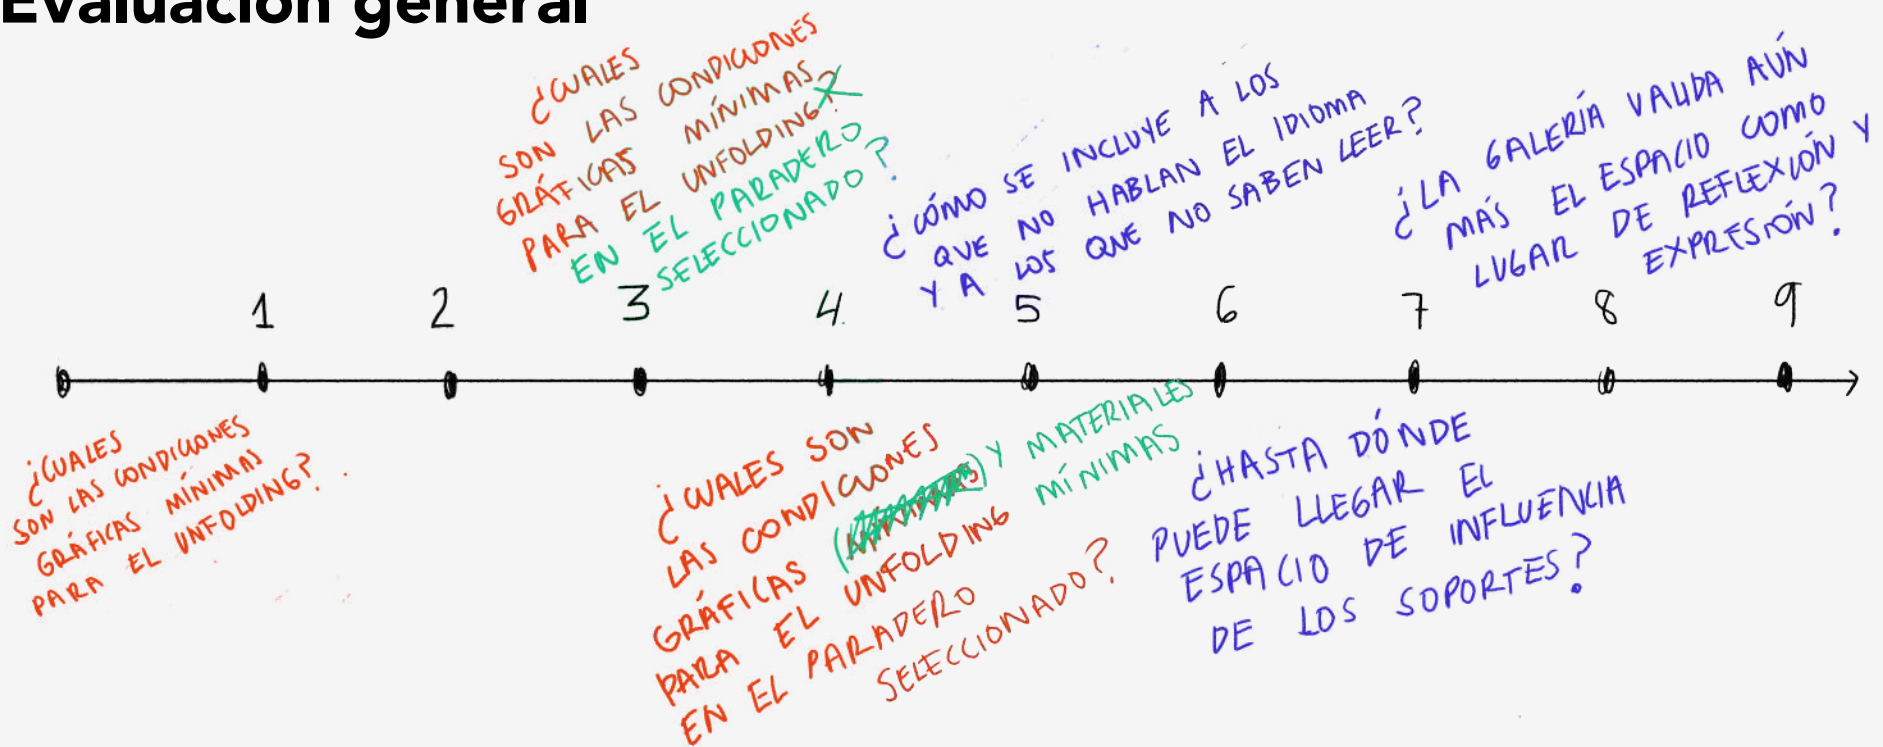 Evaluación general
¿CUALES
SON LAS CONDICIONES
GRÁFICAS MÍNIMAS
PARA EL UNFOLDING?
EN EL PARADERO
SELECCIONADO?
¿CÓMO SE INCLUYE A LOS
QUE NO HABLAN EL IDIOMA
Y A LOS QUE NO SABEN LEER?
¿LA GALERÍA VALIDA AÚN
MÁS EL ESPACIO COMO
LUGAR DE REFLEXIÓN Y
EXPRESIÓN?
1 2 3 4 5 6 7 8 9
¿CUALES
SON LAS CONDICIONES
GRÁFICAS MÍNIMAS
PARA EL UNFOLDING?
¿CUALES SON
LAS CONDICIONES
GRÁFICAS ( ) Y MATERIALES
PARA EL UNFOLDING MÍNIMAS
EN EL PARADERO
SELECCIONADO?
¿HASTA DÓNDE
PUEDE LLEGAR EL
ESPACIO DE INFLUENCIA
DE LOS SOPORTES?